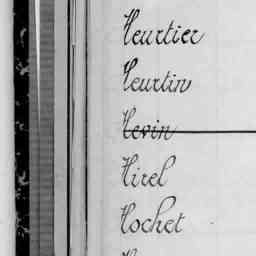 Heurtier
Heurtin
Hevin
Hirel
Hochet